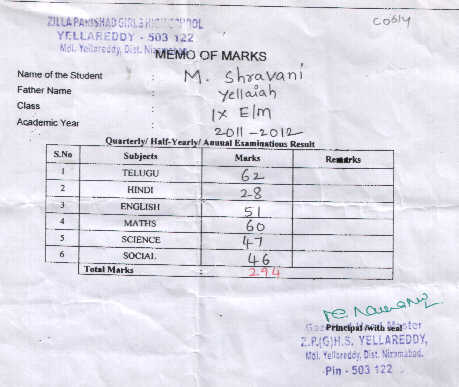 ZILLA PARISHAD GIRLS HIGH SCHOOL
YELLAREDDY - 503 122
Mdl. Yellareddy, Dist. Nizamabad.
MEMO OF MARKS
Name of the Student : M. Shravani
Father Name : Yellaiah
Class : IX E/m
Academic Year : 2011-2012
Quarterly/ Half-Yearly/ Annual Examinations Result
S.No Subjects Marks Remarks
1 TELUGU 62
2 HINDI 28
3 ENGLISH 51
4 MATHS 60
5 SCIENCE 47
6 SOCIAL 46
Total Marks : 294
Principal with seal
Z.P.(G)H.S. YELLAREDDY,
Mdl. Yellareddy, Dist. Nizamabad.
Pin - 503 122